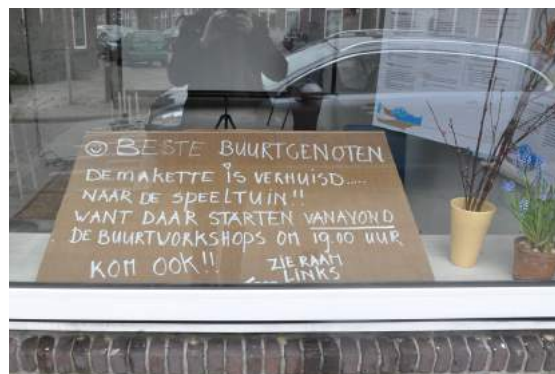 ☺ BESTE BUURTGENOTEN
DE MAKETTE IS VERHUISD.....
NAAR DE SPEELTUIN!!
WANT DAAR STARTEN VANAVOND
DE BUURTWORKSHOPS OM 19.00 UUR
KOM OOK!!
ZIE RAAM
← LINKS